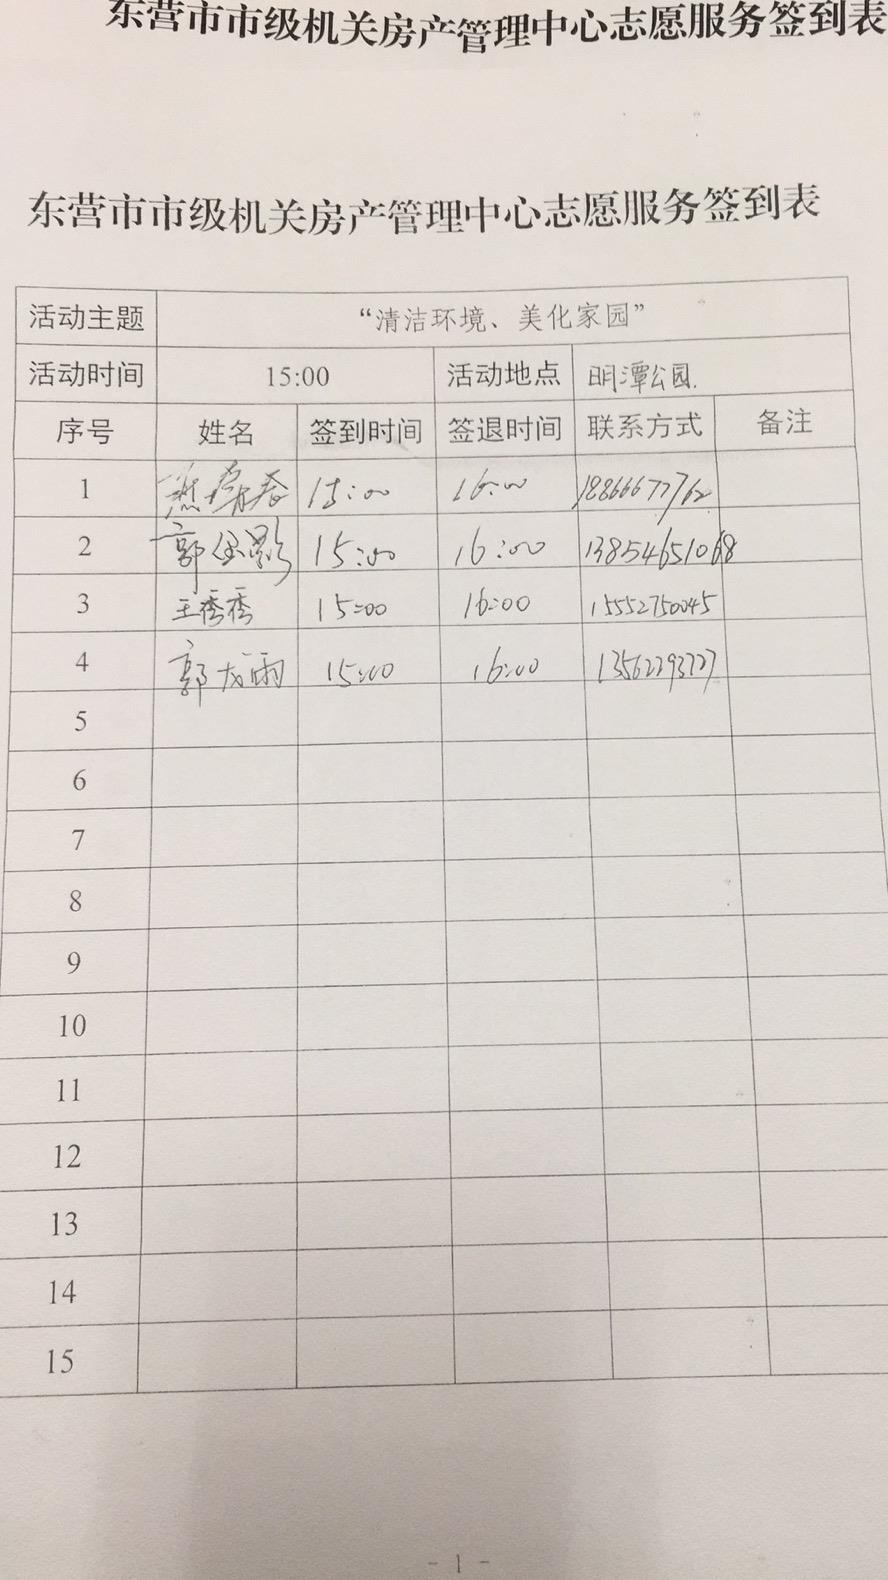 东营市市级机关房产管理中心志愿服务签到表
东营市市级机关房产管理中心志愿服务签到表
活动主题 “清洁环境、美化家园”
活动时间 15:00 活动地点 明潭公园.
序号 姓名 签到时间 签退时间 联系方式 备注
1 15:00 16:00
2 郭 15:00 16:00 13854651068
3 王秀秀 15:00 16:00 15552750045
4 郭 雨 15:00 16:00 13562293727
5
6
7
8
9
10
11
12
13
14
15
- 1 -